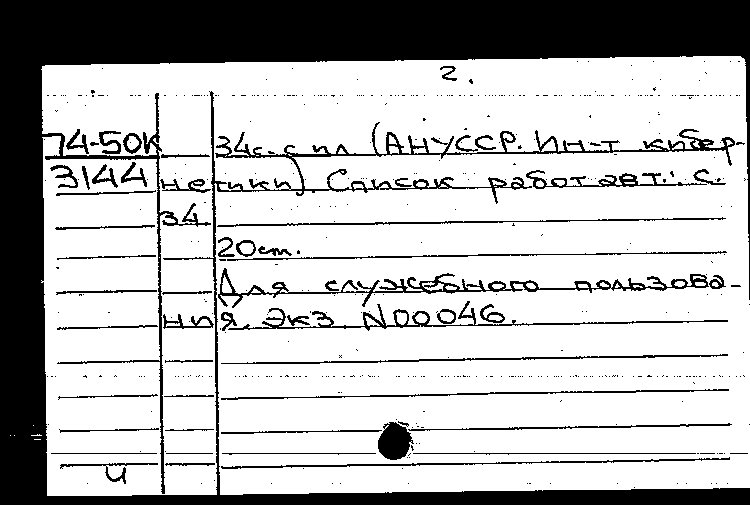 2.
74-50К 34с. с ил (АНУССР. Ин-т кибер-
3144 нетики). Список работ авт.: с.
34.
20cm.
Для служебного пользова-
ния. Экз. N00046.
ч